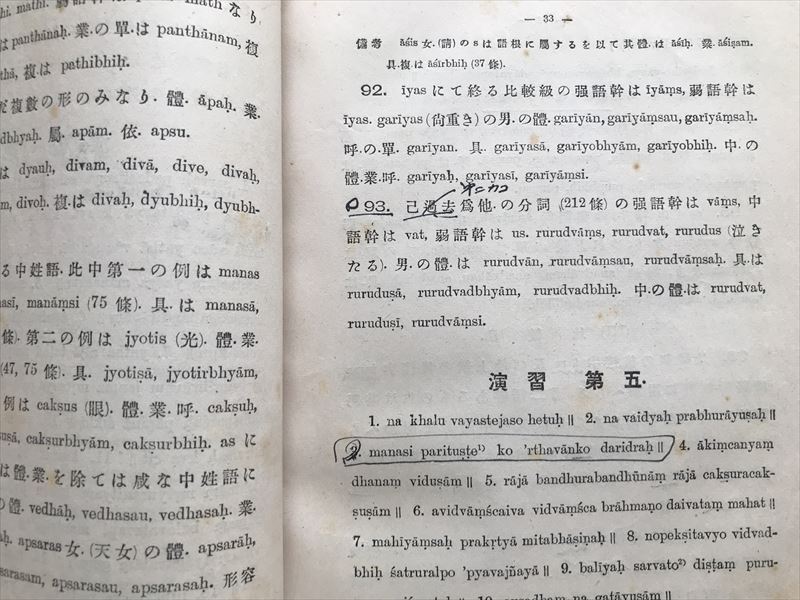 hi. mathi.
math なり
は panthānaḥ. 業の單.は panthānam, 複
thā, 複.は pathibhiḥ.
複數の形のみなり. 體. āpaḥ. 業.
dbhyaḥ. 屬. apām. 依. apsu.
は dyauḥ, divam, divā, dive, divaḥ,
m, divoḥ. 複.は divaḥ, dyubhiḥ, dyubh-
る中姓語. 此中第一の例は manas
nasi, manāṃsi (75 條). 具.は manasā,
條). 第二の例は jyotis (光). 體. 業.
(47, 75 條). 具. jyotiṣā, jyotirbhyām,
例は cakṣus (眼). 體. 業. 呼. cakṣuḥ,
uṣā, cakṣurbhyām, cakṣurbhiḥ. as に
は體.業.を除ては咸な中姓語に
の體. vedhāḥ, vedhasau, vedhasaḥ. 業.
h. apsaras 女. (天女)の體. apsarāḥ,
sarasam, apsarasau, apsarasaḥ. 形容
— 33 —
備考 āśis 女. (請)の s は語根に屬するを以て其體.は āśīḥ. 業. āśiṣam.
具.複.は āśīrbhiḥ (37 條).
92. īyas にて終る比較級の强語幹は īyāṃs, 弱語幹は
īyas. garīyas (尙重き)の男.の體. garīyān, garīyāṃsau, garīyāṃsaḥ.
呼.の單. garīyan. 具. garīyasā, garīyobhyām, garīyobhiḥ. 中.の
體.業.呼. garīyaḥ, garīyasī, garīyāṃsi.
93. 己過去爲他.の分詞 (212 條)の强語幹は vāṃs, 中
語幹は vat, 弱語幹は us. rurudvāṃs, rurudvat, rurudus (泣き
たる). 男.の體.は rurudvān, rurudvāṃsau, rurudvāṃsaḥ. 具.は
ruruduṣā, rurudvadbhyām, rurudvadbhiḥ. 中.の體.は rurudvat,
ruruduṣī, rurudvāṃsi.
演習 第五.
1. na khalu vayastejaso hetuḥ || 2. na vaidyaḥ prabhurāyuṣaḥ ||
3. manasi parituṣṭe¹⁾ ko 'rthavānko daridraḥ || 4. ākiṃcanyaṃ
dhanaṃ viduṣām || 5. rājā bandhurabandhūnāṃ rājā cakṣuracak-
ṣuṣām || 6. avidvāṃścaiva vidvāṃśca brāhmaṇo daivataṃ mahat ||
7. mahīyāṃsaḥ prakṛtyā mitabhāṣiṇaḥ || 8. nopekṣitavyo vidvad-
bhiḥ śatruralpo 'pyavajñayā || 9. balīyaḥ sarvato²⁾ diṣṭaṃ puru-